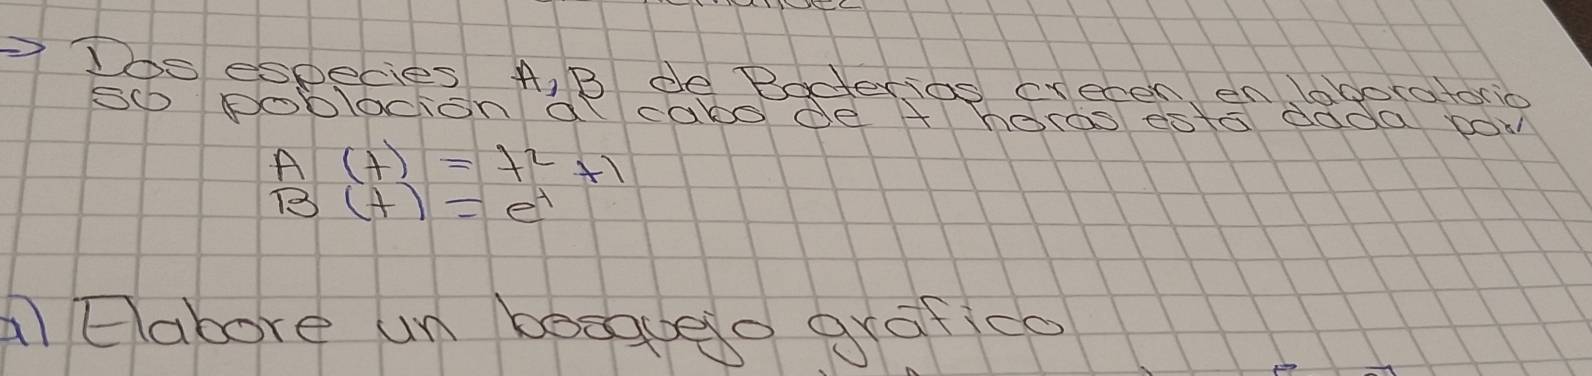 ⇒ Dos especies A, B de Bacterias crecen en laboratorio
su población al cabo de t horas está dada por
A (t) = t² + 1
B (t) = e^t
a) Elabore un bosquejo gráfico